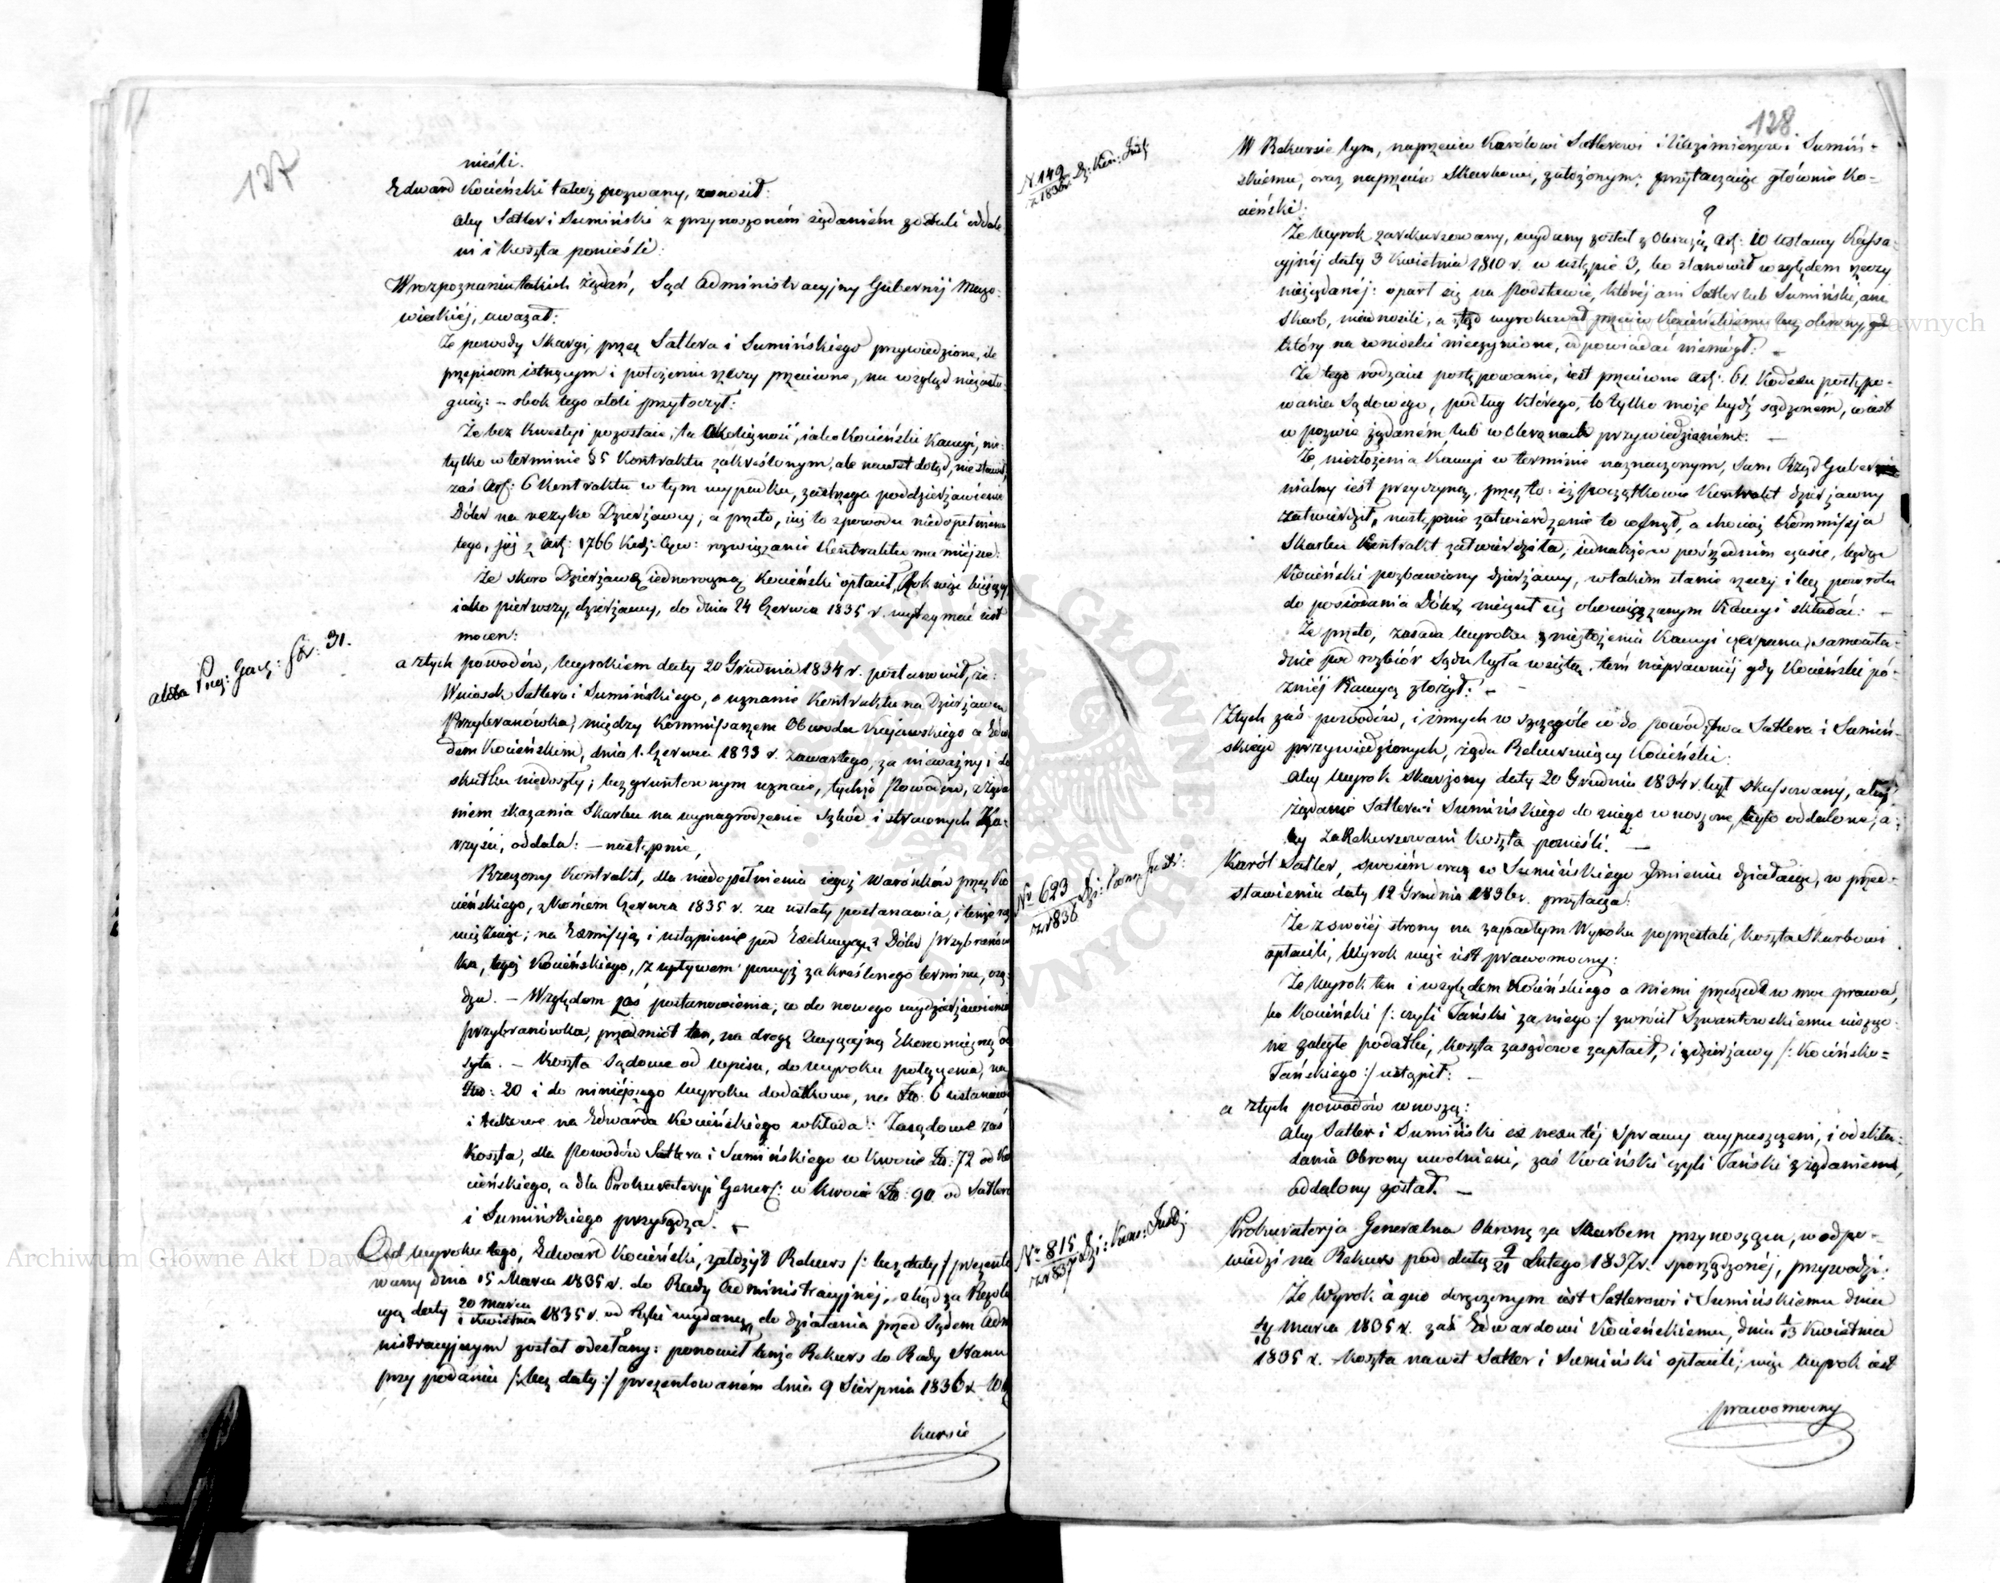 127
nieśli.
Edward Kocieński także pozwany, wnosił:
aby Satler i Sumiński z przynoszoném żądaniém zostali oddale
ni i koszta ponieśli:
W rozpoznaniu takich żądań, Sąd Administracyjny Gubernij Mazo-
wieckiéj, uważał:
Że powody Skargi, przez Satlera i Sumińskiego przywiedzione, ile
przepisom istnącym i położeniu rzeczy przeciwne, na wzgląd niezasłu-
guią: – obok tego atoli przytoczył:
Że bez kwestyi pozostaie, ta okoliczność, iako Kocieński Kaucyi, nie-
tylko w terminie § 5 Kontraktu zakreślonym, ale nawet dotąd, nie stawił,
zaś Art: 6 Kontraktu w tym wypadku, zastrzega poddzierżawienie
Dóbr na rezyko Dzierżawcy; a przeto, iuż to z powodu niedopełnienia
tego, iuż z Art: 1766 Kod: Cyw: rozwiązanie Kontraktu ma miéjsce:
Że skoro Dzierżawę iednoroczną Kocieński opłacił, Rok więc bieżący,
iako pierwszy, dzierżawy, do dnia 24 Czerwca 1835 r. wytrzymać iest
mocen:
a z tych powodów, Wyrokiem daty 20 Grudnia 1834 r. postanowił, że:
Wniosek Satlera i Sumińskiego, o uznanie Kontraktu na Dzierżawę
Przybranówka, między Kommissarzem Obwodu Kujawskiego a Edwar
dem Kocieńskim, dnia 1. Czerwca 1833 r. zawartego, za nieważny i do
skutku niedoszły; bezgruntownym uznaie, tychże Powodów, z żąda
niem skazania Skarbu na wynagrodzenie szkód i straconych Ko-
rzyści, oddala: – następnie,
Rzeczony Kontrakt, dla niedopełnienia iegoż warónków przez Ko
cieńskiego, z końcem Czerwca 1835 r. za ustały postanawia, i tenże roz
wiązuie; na Exmissyią i ustąpienie pod Exekucyą z Dóbr Przybranów
ka, tegoż Kocieńskiego, z upływem powyż zakreślonego terminu, osą
dza. – Względem zaś postanowienia, co do nowego wydzierżawienia
Przybranówka, przedmiot ten, na drogę zwyczajną Ekonomiczną od
syła. – Koszta Sądowe od wpisu, do wyroku połączenia, na
Złp: 20 i do niniéjszego Wyroku dodatkowe, na Złp: 6 ustanawia
i takowe na Edwarda Kocieńskiego wkłada: Zasądowe zaś
Koszta, dla Powodów Satlera i Sumińskiego w kwocie Złp: 72 od Ko
cieńskiego, a dla Prokuratoryi Gener: w kwocie Złp: 90 od Satlera
i Sumińskiego przysądza. –
Od Wyroku tego, Edward Kocieński, założył Rekurs /: bez daty / prezento
wany dnia 15 Marca 1835 r. do Rady Administracyjnéj, a będąc za Rezolu
cyą daty 20 Marca / 1 Kwietnia 1835 r. od Rządu wydaną, do działania przed Sądem Admi
nistracyjnym został odesłany: ponowił tenże Rekurs do Rady Stanu
przy podaniu /: bez daty :/ prezentowaném dnia 9 Sierpnia 1836 r. – W Re
kursie
128
N 149 / z 1836 r. Dz: Kan: Just:
W Rekursie tym, naprzeciw Karólowi Satlerowi i Kazimierzowi Sumiń-
skiemu, oraz naprzeciw Skarbowi, założonym: przytaczaiąc głównie Ko-
cieński:
Że Wyrok zarekurzowany, wydany został z Obrazą Art: 10 Ustawy Kassa-
cyjnéj daty 3 Kwietnia 1810 r. w ustępie 3, bo stanowił względem rzeczy
nieżądanéj: oparł się na Podstawie, któréj ani Satler lub Sumiński, ani
Skarb, niewnosili, a ztąd wyrokował przeciw Kocieńskiemu bez obrony, gdy
który na wnioski nieczynione, odpowiadać niemógł: –
Że tego rodzaiu postępowanie, iest przeciwne Art: 61. Kodexu postępo-
wania Sądowego, podług którego, to tylko może bydź sądzoném, co iest
w pozwie żądaném, lub w Obronach przywiedzioném: –
Że, niezłożenia Kaucyi w terminie naznaczonym, sam Rząd Guber
nialny iest przyczyną, przez to: iż początkowo Kontrakt dzierżawny
zatwierdził, następnie zatwierdzenie to cofnął, a chociaż Kommissya
Skarbu Kontrakt zatwierdziła, iednakże w pośrednim czasie, będąc
Kocieński pozbawiony dzierżawy, w takim stanie rzeczy i bez powrotu
do posiadania Dóbr, nieczuł się obowiązanym Kaucyi składać: –
Że przeto, zasada Wyroku z niezłożenia Kaucyi czerpana, samowła-
dnie pod rozbiór Sądu była wziętą, tém nieprawniéj gdy Kocieński pó-
źniéj Kaucyą złożył: –
Z tych zaś powodów, i innych w szczególe co do powództwa Satlera i Sumiń-
skiego przywiedzionych, żąda Rekurruiący Kocieński:
Aby Wyrok skarżony daty 20 Grudnia 1834 r. był skassowany, aby
żądanie Satlera i Sumińskiego do niego wnoszone, było oddalone, a-
by zaRekurzowani koszta ponieśli. –
No 623 / z r 1836 Dz: Kanc: Just:
Karól Satler, swoiém oraz w Sumińskiego Imieniu działaiąc, w przed-
stawieniu daty 12 Grudnia 1836 r. przytacza:
Że z swoiéj strony na zapadłym Wyroku poprzestali, koszta Skarbowi
opłacili, Wyrok więc iest prawomocny:
Że Wyrok ten i względem Kocieńskiego a niemi przeszedł w moc prawa,
bo Kocieński /: czyli Tański za niego :/ zwrócił Szwantowskiemu uiszczo-
ne zaległe podatki, koszta zasądowe zapłacił, i z dzierżawy /: Kocińsko-
Tańskiego :/ ustąpił: –
a z tych powodów wnoszą:
Aby Satler i Sumiński ze wszystkiéj Sprawy wypuszczeni, i od skła-
dania Obrony uwolnieni, zaś Kociński czyli Tański z żądaniem,
oddalony został. –
No 815 / z r 837 Dz: Kanc: Just:
Prokuratorja Generalna Obronę za Skarbem przynosząca, w odpo-
wiedzi na Rekurs pod datą 9/21 Lutego 1837 r. sporządzonéj, przywodzi:
Że Wyrok à quo doręczonym iest Satlerowi i Sumińskiemu dnia
4/16 Marca 1835 r. zaś Edwardowi Kocieńskiemu, dnia 1/13 Kwietnia
1835 r. – Koszta nawet Satler i Sumiński opłacili, więc Wyrok iest
prawomocny
Archiwum Główne Akt Dawnych
Archiwum Główne Akt Dawnych